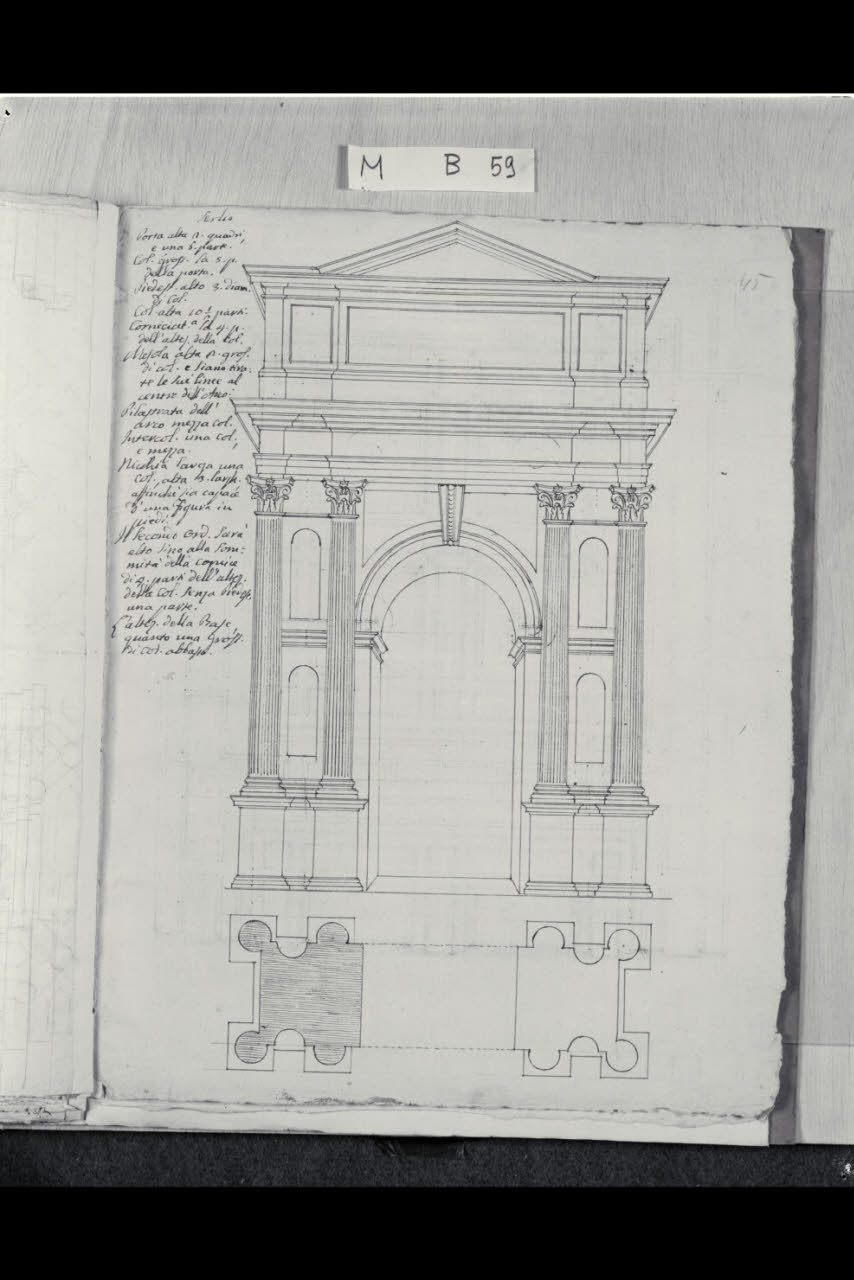 M B 59
45
Serlio
Porta alta 2. quadri,
e una 5. parte.
Col. gross. la 5. p.
della porta.
Piedest. alto 3. diam.
di Col.
Col. alta 10. parti.
Corniciat.ª la 4. p.
dell'altez. della Col.
Mesola alta 2. gros.
di col. e siano tira:
te le sue linee al
centro dell'Arco.
Pilastrata dell'
arco mezza col.
Intercol. una col,
e mezza.
Nichia larga una
col. alta
affinché sia capace
d'una figura in
piedi.
Il secondo Ord. sarà
alto sino alla som:
mità della cornice
di parti dell'altez.
della Col. senza
una parte.
L'altez. della Base
quanto una Gross.
di col. abbasso.